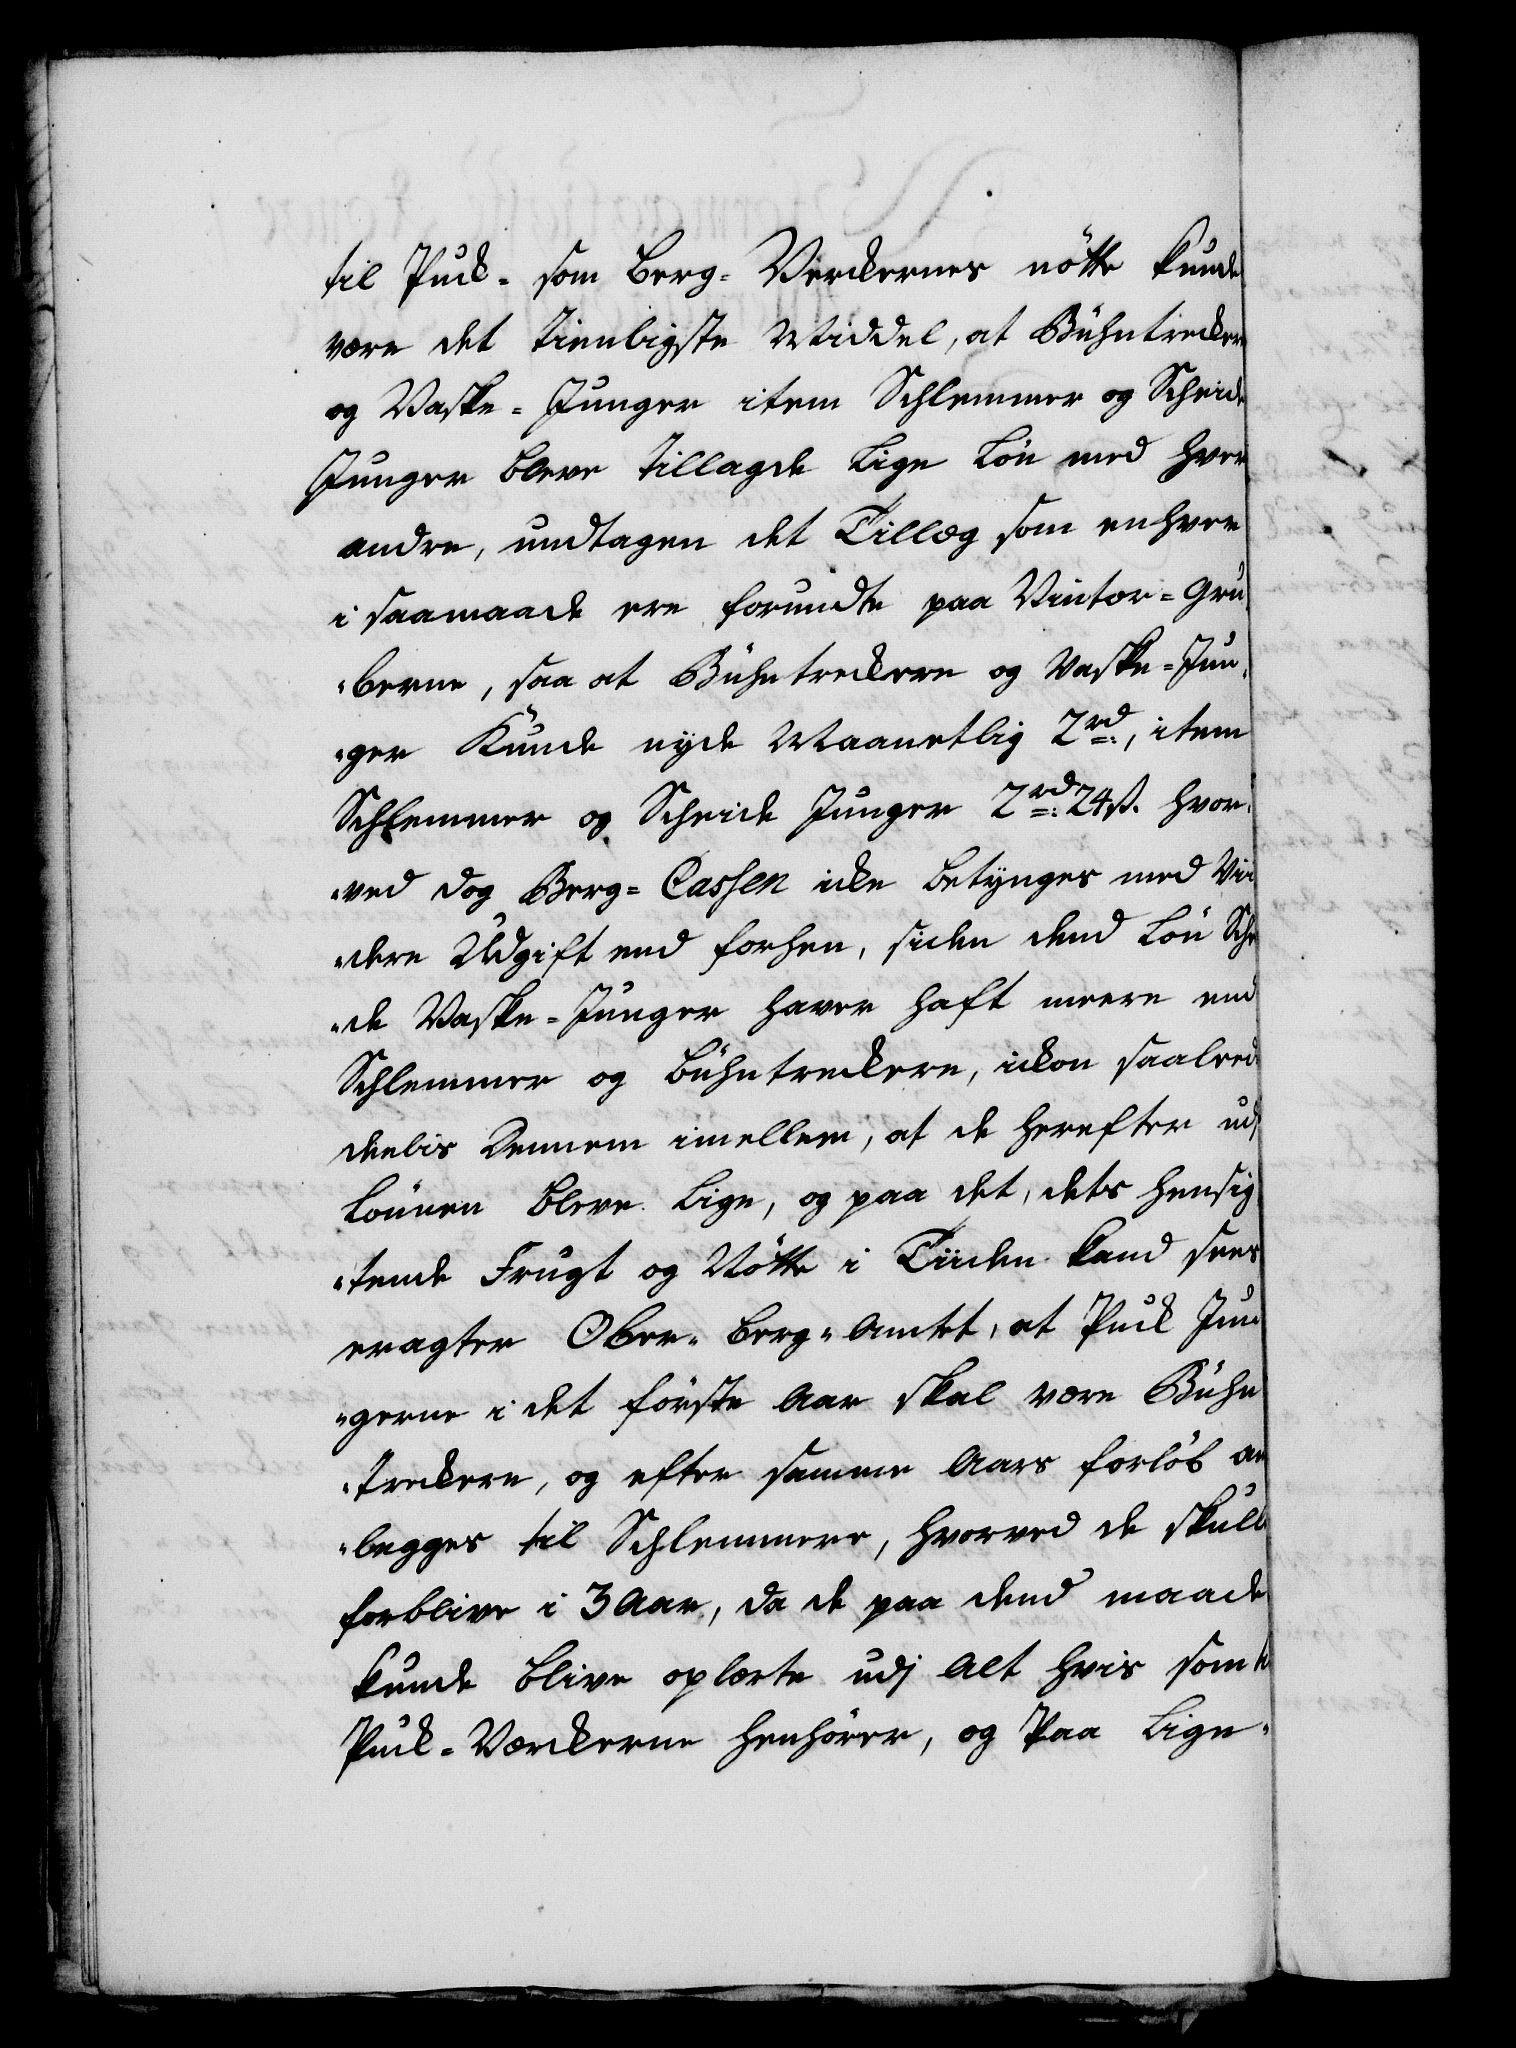 til Puck- som Berg-Verckernes nötte kunde
være det tienligste Middel, at Bühntreckere
og Vaske-Junger item Schlemmer og Scheide
Junger bleve tillagde lige Lön med hver
andre, undtagen det Tillæg som enhver
i saamaade ere forundte paa Vintor-Gru
"berne, saa at Bühntreckere og Vaske-Jun,
"ger Kunde nyde Maanetlig 2 rd:, item
Schlemmer og Scheide Junger 2 rd: 24 ß. hvor,
"ved dog Berg-Cassen icke betynges med Vii
"dere Udgift end forhen, siden dend Lön Sche
"de Vaske-Junger haver haft meere end
Schlemmer og Bühntreckere, ickon saaled
deelis Dennem imellem, at de herefter udj
Lönnen bleve lige, og paa det, dets hensig
"tende Frugt og Nötte i Tiiden kand sees
eragter Ober-Berg-Amtet, at Puck Jun
"gerne i det förste Aar skal være Bühn
"treckere, og efter samme Aars forlöb an
"legges til Schlemmere, hvorved de skulle
forblive i 3 Aar, da de paa dend maade
kunde blive oplærte udj alt hvis som
Puck-Værckerne henhörer, og paa lige-